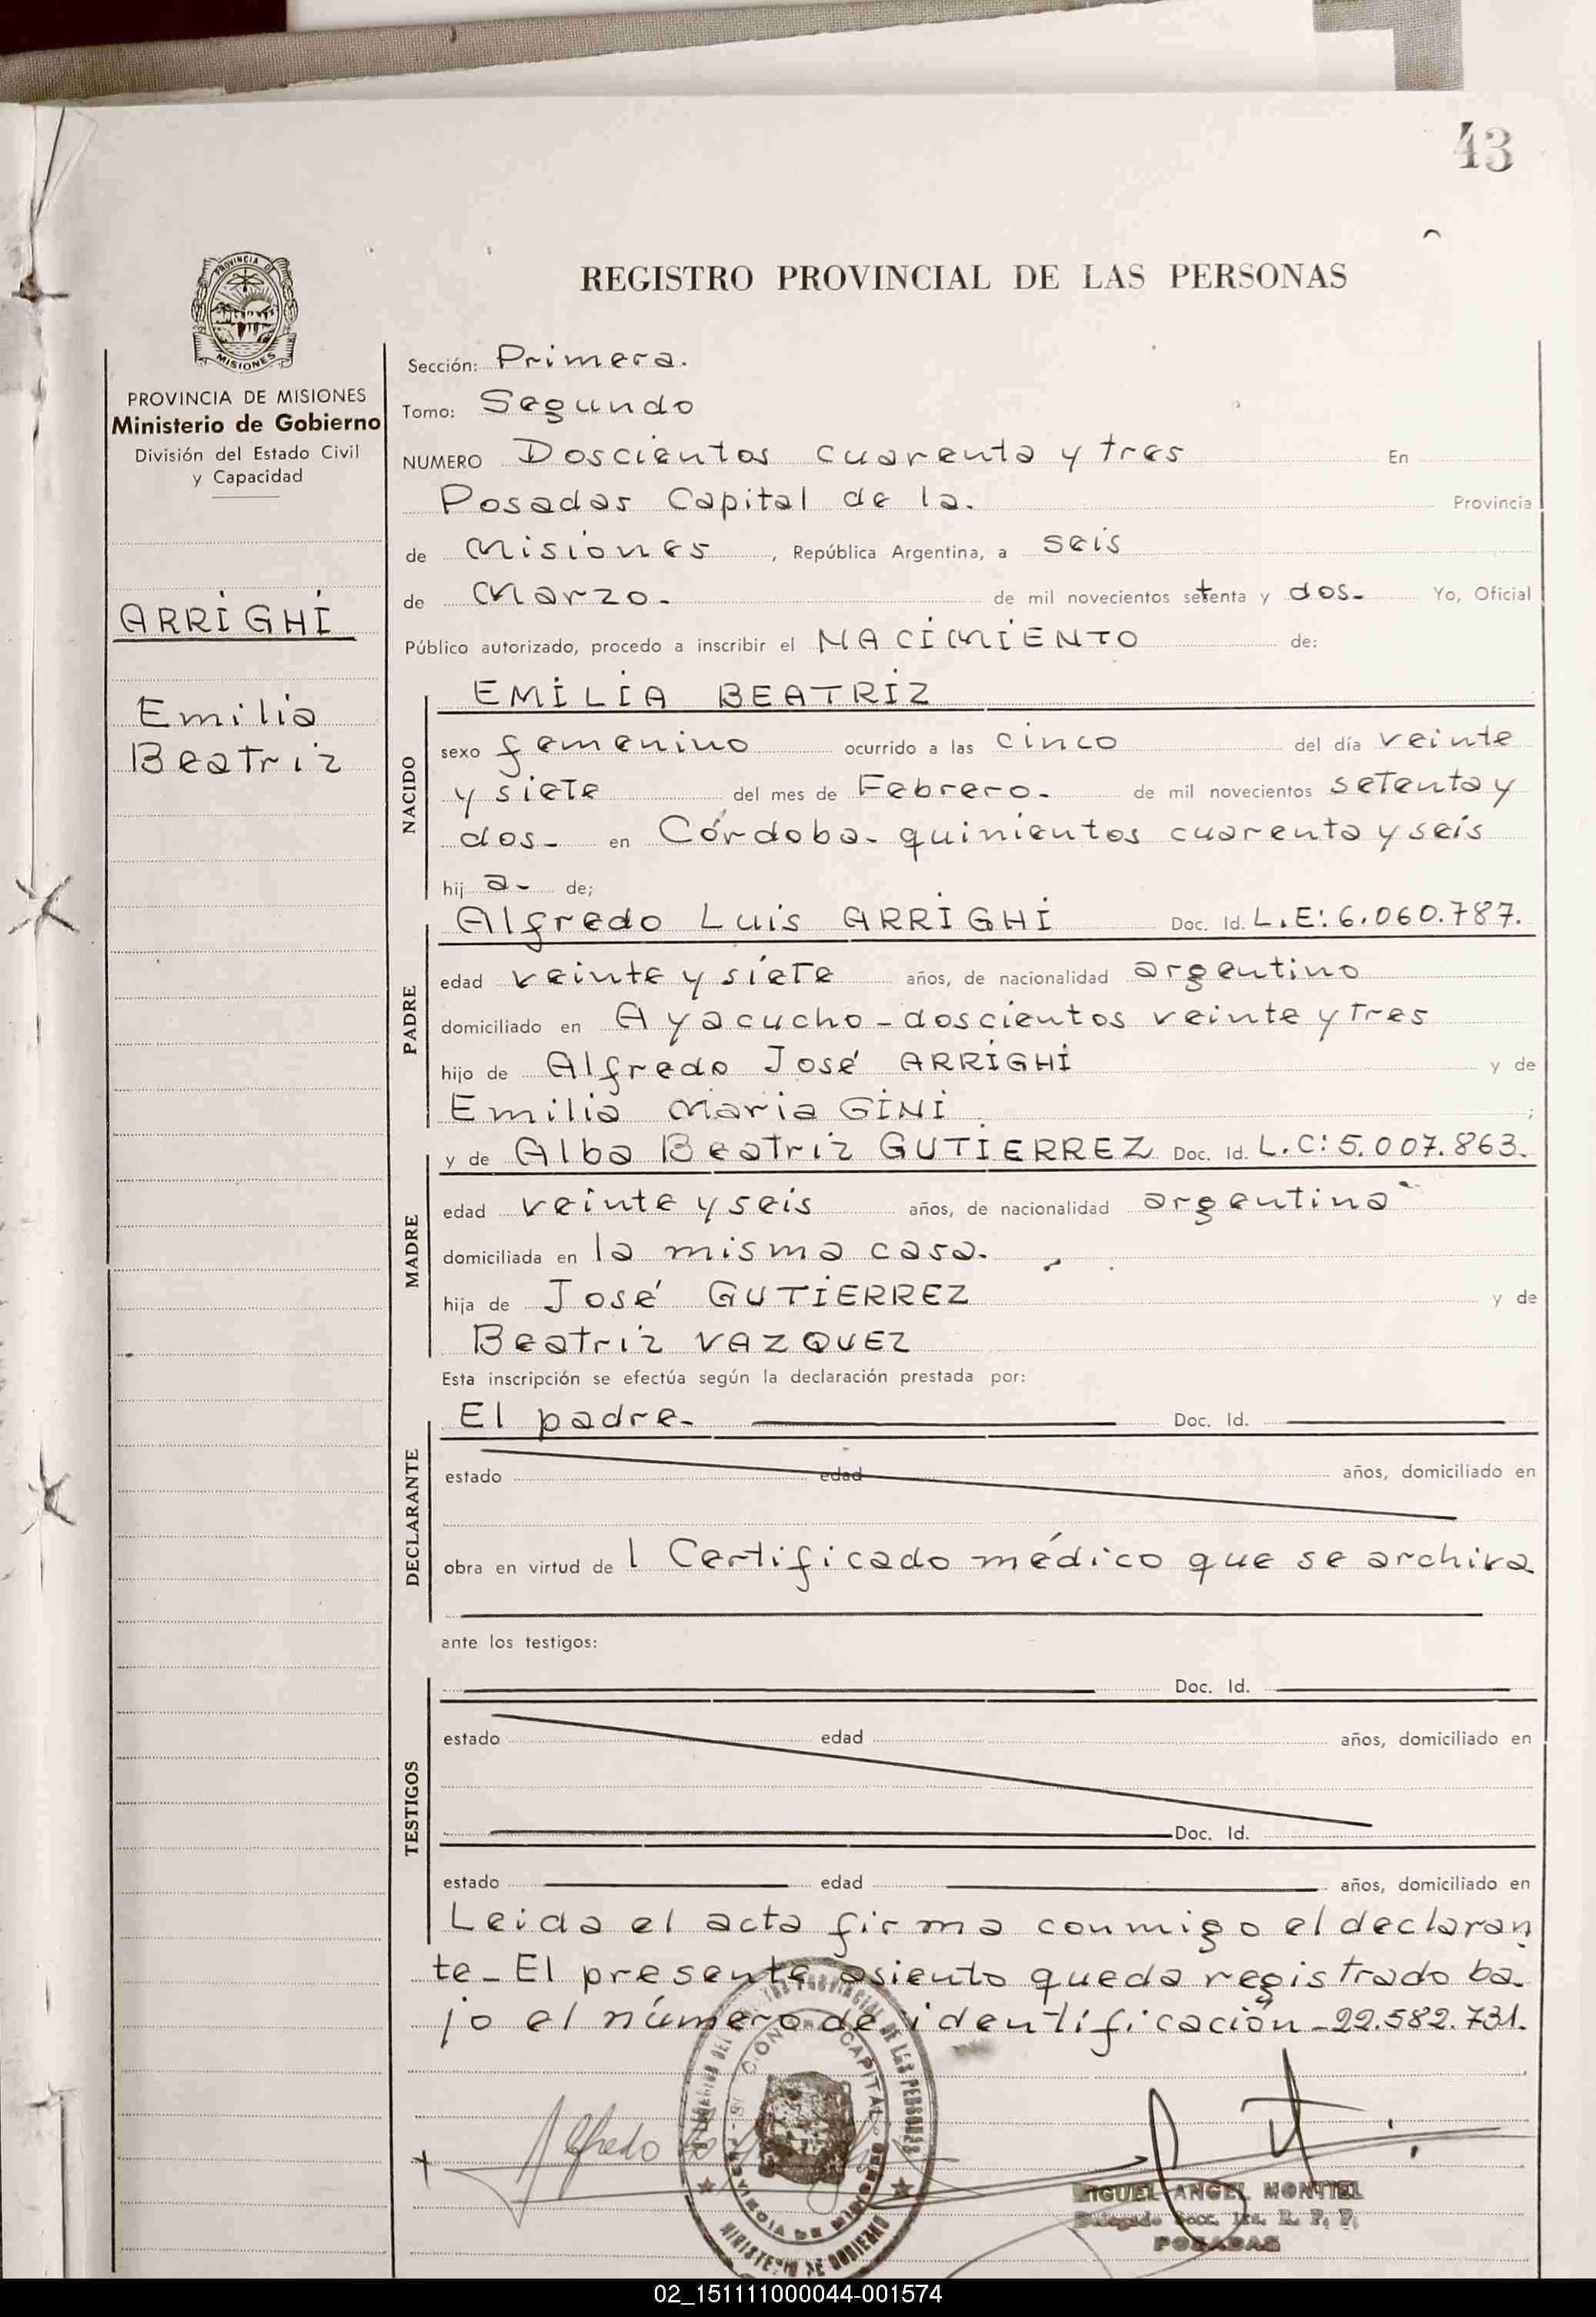 43
PROVINCIA DE
MISIONES
REGISTRO PROVINCIAL DE LAS PERSONAS
PROVINCIA DE MISIONES
Ministerio de Gobierno
División del Estado Civil
y Capacidad
ARRIGHI
Emilia
Beatriz
Sección: Primera.
Tomo: Segundo
NUMERO Doscientos cuarenta y tres En
Posadas Capital de la. Provincia
de Misiones, República Argentina, a seis
de Marzo. de mil novecientos setenta y dos- Yo, Oficial
Público autorizado, procedo a inscribir el NACIMIENTO de:
NACIDO
EMILIA BEATRIZ
sexo femenino ocurrido a las cinco del día veinte
y siete del mes de Febrero. de mil novecientos setenta y
dos- en Córdoba- quinientos cuarenta y seis
hij a- de;
PADRE
Alfredo Luis ARRIGHI Doc. Id. L.E: 6.060.787.
edad veinte y siete años, de nacionalidad argentino
domiciliado en Ayacucho - doscientos veinte y tres
hijo de Alfredo José ARRIGHI y de
Emilia Maria GINI ;
MADRE
y de Alba Beatriz GUTIERREZ Doc. Id. L.C: 5.007.863.
edad veinte y seis años, de nacionalidad argentina
domiciliada en la misma casa.
hija de José GUTIERREZ y de
Beatriz VAZQUEZ
Esta inscripción se efectúa según la declaración prestada por:
DECLARANTE
El padre- Doc. Id.
estado edad años, domiciliado en
obra en virtud de l Certificado médico que se archiva
ante los testigos:
TESTIGOS
Doc. Id.
estado edad años, domiciliado en
Doc. Id.
estado edad años, domiciliado en
Leida el acta firma conmigo el declaran
te- El presente asiento queda registrado ba-
jo el número de identificación - 22.582.731.
Alfredo
MIGUEL ANGEL MONTIEL
POSADAS
02_151111000044-001574